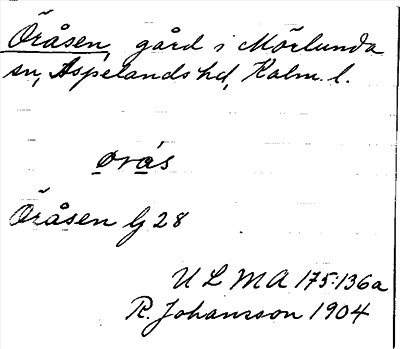 Öråsen, gård i Mörlunda
sn, Aspelands hd, Kalm. l.
øvás
Öråsen Lj 28
U L M A 175:136a
R. Johansson 1904